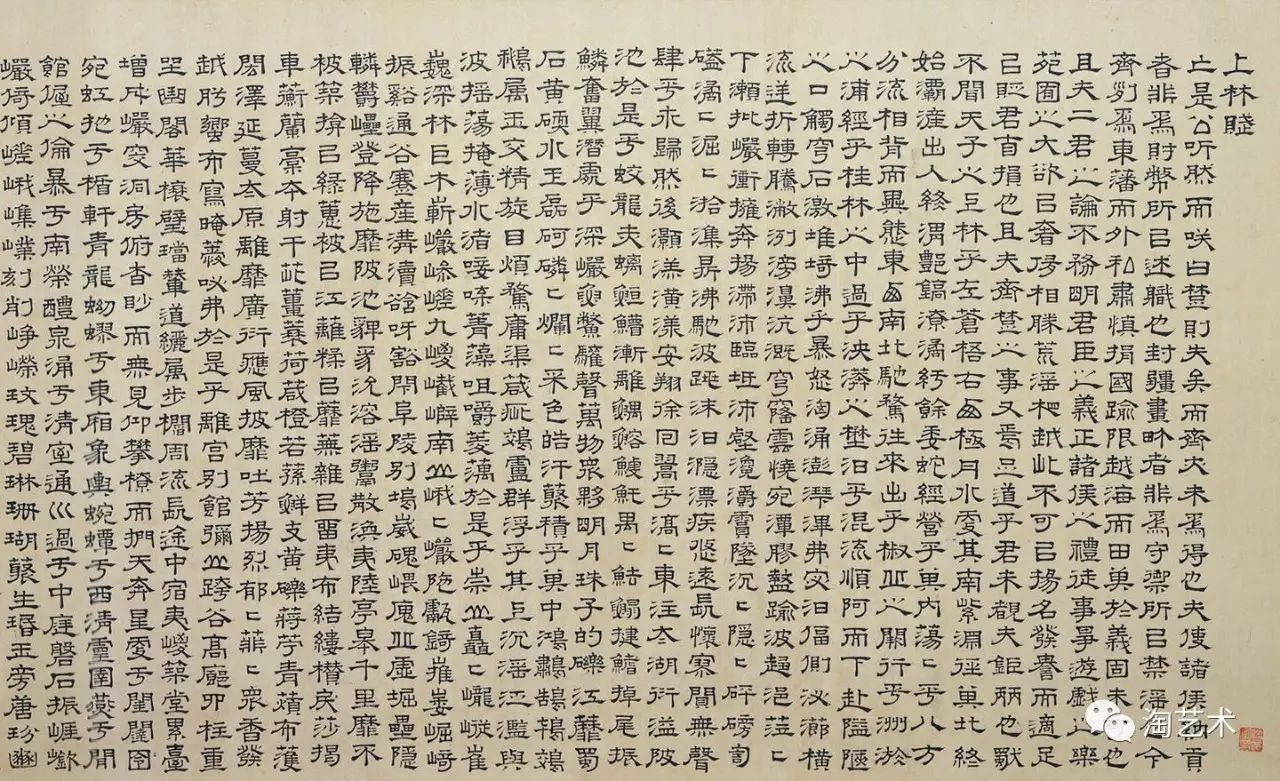 上林賦
亡是公听然而咲曰楚則失矣而齊亦未爲得也夫使諸侯納貢
者非爲財幣所㠯述職也封疆畫畍者非爲守禦所㠯禁淫也今
齊列爲東藩而外私肅慎捐國踰限越海而田其於義固未可也
且夫二君之論不務明君臣之義正諸侯之禮徒事爭遊戲之樂
苑囿之大欲㠯奢侈相勝荒淫相越此不可㠯揚名發譽而適足
㠯貶君自損也且夫齊楚之事又焉足道乎君未覩夫鉅麗也獨
不聞天子之上林乎左蒼梧右西極丹水更其南紫淵徑其北終
始灞滻出入涇渭酆鎬潦潏紆餘委蛇經營乎其內蕩〻乎八川
分流相背而異態東西南北馳騖往來出乎椒丘之闕行乎洲淤
之浦經乎桂林之中過乎泱漭之壄汩乎混流順阿而下赴隘陿
之口觸穹石激堆埼沸乎暴怒洶涌澎湃滭弗宓汩偪側泌瀄橫
流逆折轉騰潎洌滂濞沆溉穹窿雲橈宛潬膠盭踰波趨浥蒞〻
下瀨批巖衝擁奔揚滯沛臨坻注壑瀺灂霣墜沉〻隱〻砰磅訇
礚潏〻淈〻湁潗鼎沸馳波跳沫汩㶒漂疾悠遠長懷寂漻無聲
肆乎永歸然後灝溔潢漾安翔徐回翯乎滈〻東注太湖衍溢陂
池於是乎蛟龍赤螭䱭䲛漸離鰅鰫鰬魠禺〻魼鰨揵鰭掉尾振
鱗奮翼潛處乎深巖魚鱉讙聲萬物眾夥明月珠子的皪江靡蜀
石黃碝水玉磊砢磷〻爛〻采色澔汗藂積乎其中鴻鷫鵠鴇鴐
鵝属玉交精旋目煩鶩庸渠葴疵鵁盧群浮乎其上沉淫泛濫與
波搖蕩掩薄水渚唼喋菁藻咀嚼菱藕於是乎崇山矗〻巃嵸崔
巍深林巨木嶄巖參嵯九嵕巀嶭南山峨〻巖陁甗錡摧崣崛崎
振谿通谷蹇產溝瀆谽呀豁閜阜陵別隝崴磈㟪廆丘虛堀礨隱
轔鬱壘登降施靡陂池貏豸沇溶淫鬻散渙夷陸亭皋千里靡不
被築揜㠯綠蕙被㠯江蘺糅㠯蘼蕪雜㠯留夷布結縷攢戾莎揭
車蘅蘭槀本射干茈薑蘘荷葴橙若蓀鮮支黃礫蔣苧青薠布濩
閎澤延蔓太原離靡廣衍應風披靡吐芳揚烈郁〻菲〻眾香發
越肸蠁布寫晻薆咇弗於是乎離宮別館彌山跨谷高廊四注重
坐曲閣華榱璧璫輦道纚属步櫩周流長途中宿夷嵕築堂累臺
增成巖突洞房俯杳眇而無見仰攀橑而捫天奔星更于閨闥
宛虹扡于楯軒青龍蚴蟉于東廂象輿婉蟬于西清靈圄燕于閒
館偓佺之倫暴于南榮醴泉涌于清室通川過于中庭磐石振崖嶔
巖倚傾嵯峨嶫嶪刻削崢嶸玫瑰碧琳珊瑚叢生瑉玉旁唐玢豳
淘艺术